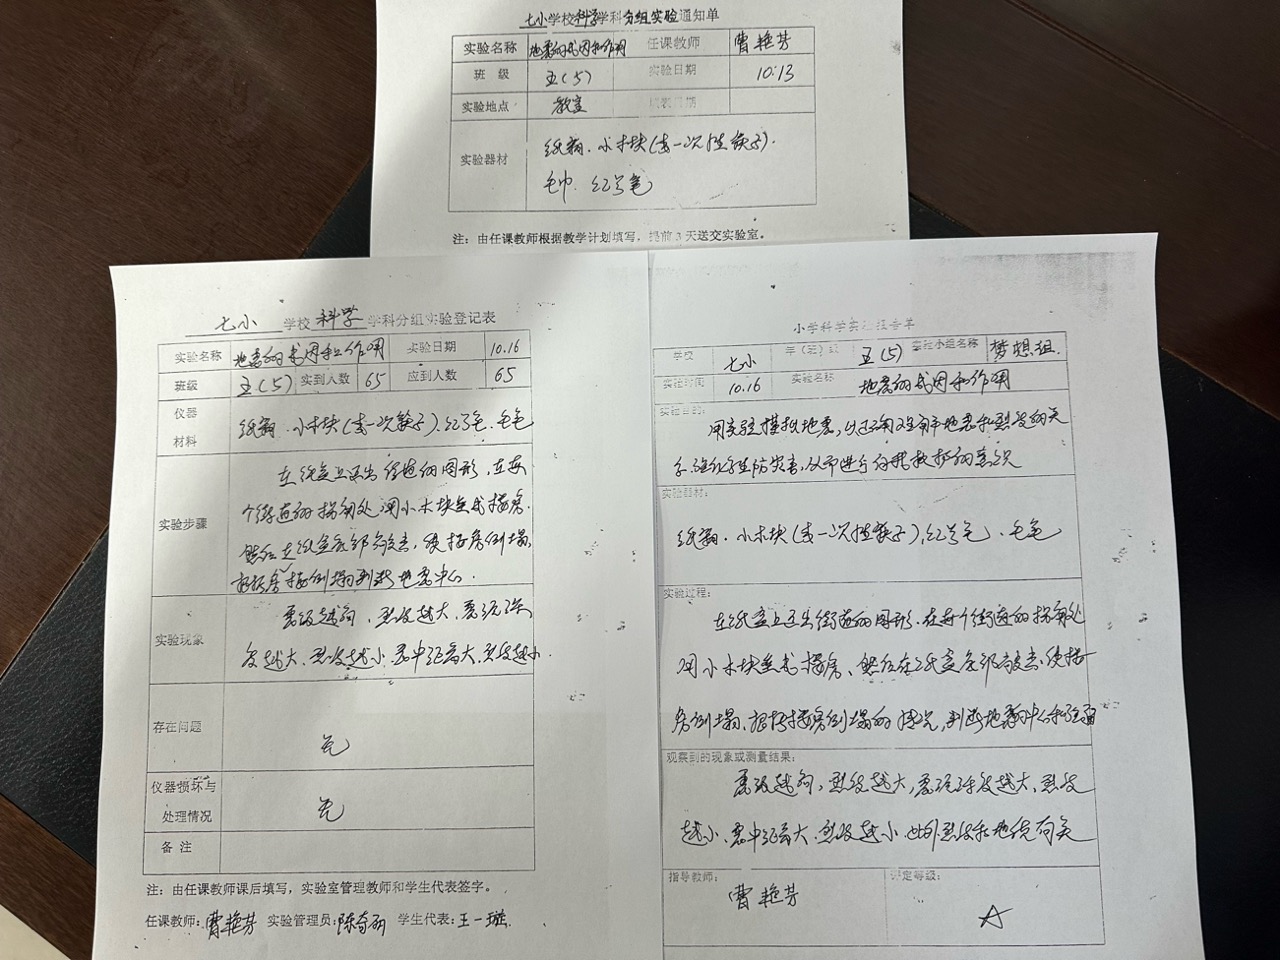 七小学校科学学科分组实验通知单
实验名称 地震的成因和作用 任课教师 曹艳芳
班 级 五(5) 实验日期 10.13
实验地点 教室 填表日期
实验器材 纸箱.小木块(或一次性筷子).
毛巾.红
注：由任课教师根据教学计划填写，提前3天送交实验室。
七小 学校 科学 学科分组实验登记表
实验名称 地震的成因和作用 实验日期 10.16
班级 五(5) 实到人数 65 应到人数 65
仪器
材料 纸箱.小木块(或一次筷子).红
实验步骤 在纸盒上画出街道的图形,在每
个街道的拐角处用小木块垒成楼房.
然后在纸盒底部敲击,使楼房倒塌
楼倒塌判断地震中心.
实验现象 震级越高,烈度越大,震源深
度越大,烈度越小.震中距离大,烈度越小.
存在问题 无
仪器损坏与
处理情况 无
备 注
注：由任课教师课后填写，实验室管理教师和学生代表签字。
任课教师:曹艳芳 实验管理员:陈 学生代表:王一
小学科学实验报告单
学校 七小 年(班)级 五(5) 实验小组名称 梦想组.
实验时间 10.16 实验名称 地震的成因和作用
实验目的:
用实验模拟地震,地震和烈度的关
系.强化学生防灾害,从而进行自我救护的意识
实验器材:
纸箱.小木块(或一次性筷子),红
实验过程:
在纸盒上画出街道的图形.在每个街道的拐角处
用小木块垒成楼房、然后在纸盒底部敲击,使楼
房倒塌、根据楼房倒塌的情况,判断地震中心和
观察到的现象或测量结果:
震级越高,烈度越大,震源深度越大,烈度
越小、震中距离大.烈度越小.此外烈度和地质有关
指导教师: 曹艳芳 评定等级: ☆